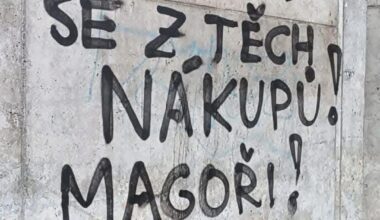 SE Z TĚCH
NÁKUPŮ!
MAGOŘI!